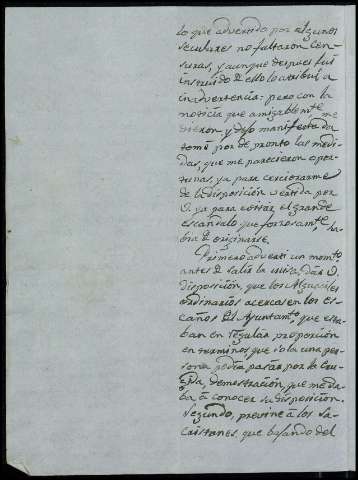 lo que advertido por algunos
seculares no faltaron cen-
suras, y aunque despues fui
instruido de ello lo atribui a
inadvertencia: pero con la
noticia que amigablemte me
dieron, y dejo manifestada
tomé por de pronto las medi-
das, que me parecieron opor-
tunas, ya para cerciorarme
de la disposición vertida por
V. ya para evitar el grande
escandalo que forzosamte ha-
bia de originarse.
Primero adverti un momto
antes de salir la misa, dar V.
disposición, que los Alguaciles
ordinarios acercasen los es-
caños del Ayuntamto que esta-
ban en regular proporción
en terminos que sola una per-
sona podia pasar por la
demostración, que me da-
ba á conocer su disposicion.
Segundo, previne á los Sa-
cristanes, que bajando del